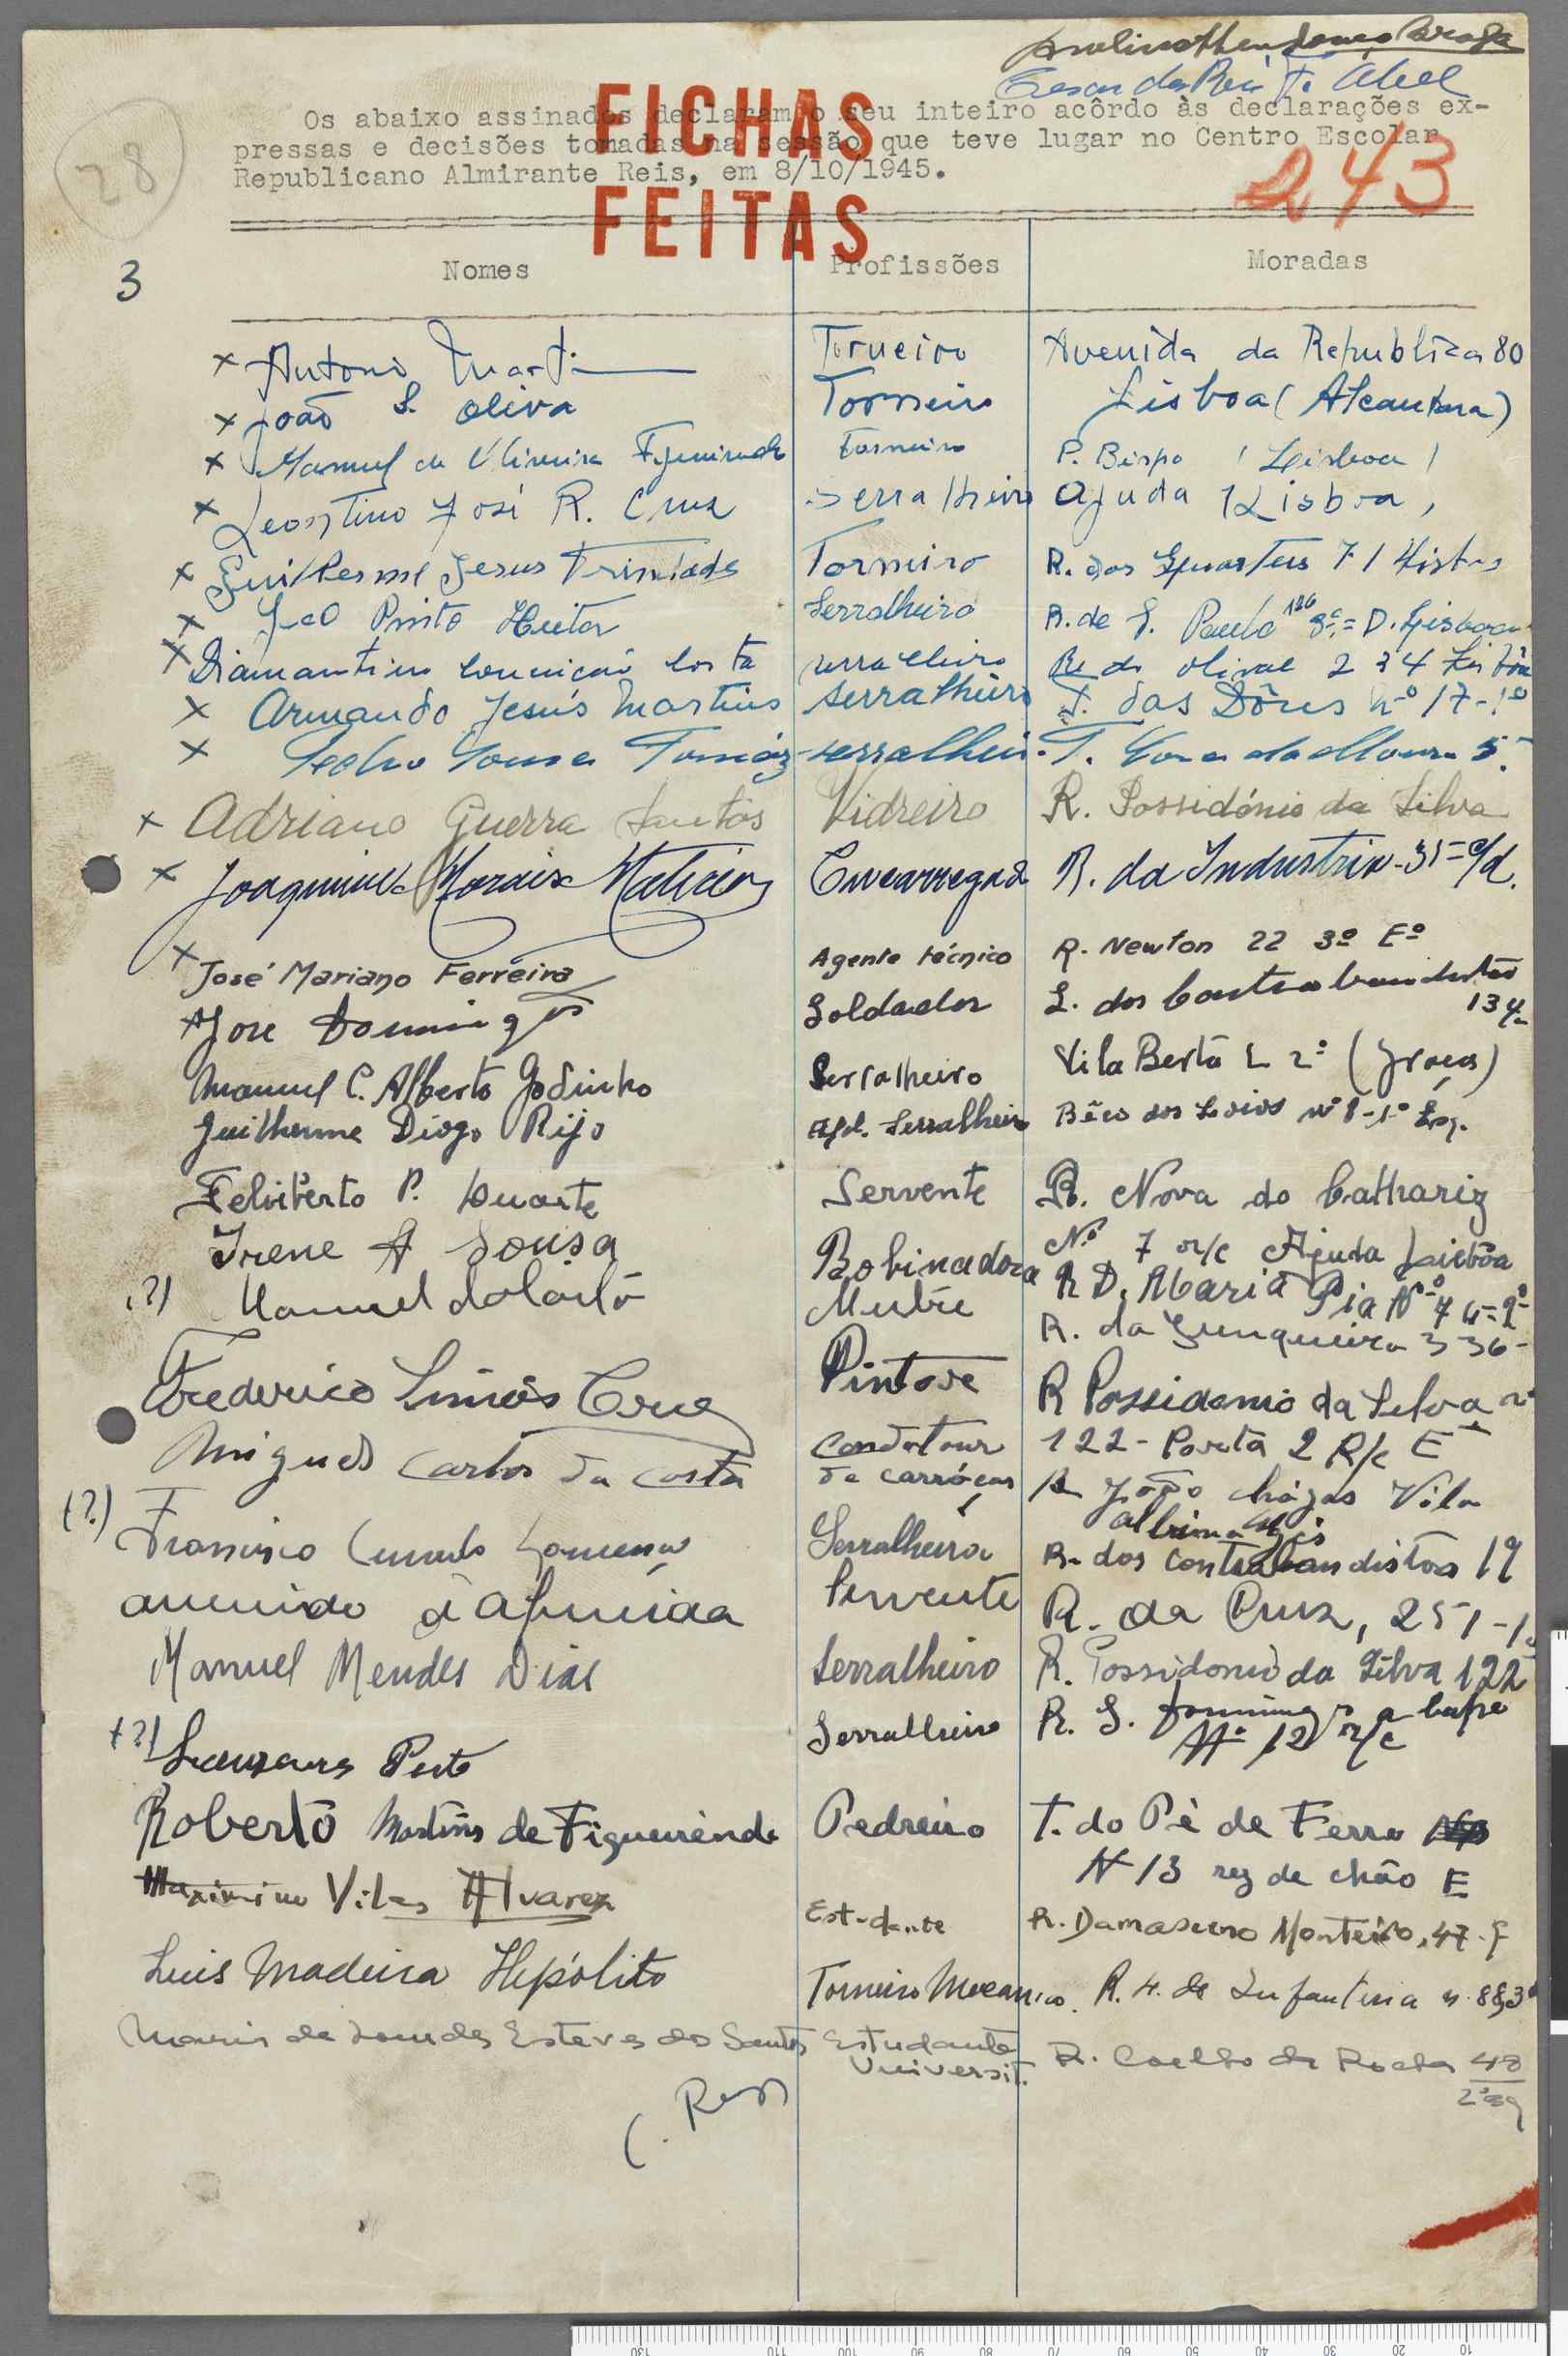 Cesar dos Reis
Os abaixo assinados declaram o seu inteiro acôrdo às declarações ex-
pressas e decisões tomadas na sessão que teve lugar no Centro Escolar
Republicano Almirante Reis, em 8/10/1945.
FICHAS
FEITAS
28
243
3
Nomes Profissões Moradas
x Antonio Martins Torneiro Avenida da Republica 80
x João S. Oliva Torneiro Lisboa (Alcantara)
x Manuel de Oliveira Figueiredo Torneiro P. Bispo (Lisboa)
x Leontino José R. Cruz Serralheiro Ajuda Lisboa
x Guilherme Jesus Trindade Torneiro R. dos Quarteis 71
x Pinto Heitor Serralheiro R. de S. Paulo 126 3º D. Lisboa
x Diamantino Costa serralheiro do Olival 234 Lisbôa
x Armando Jesús Martins serralheiro T. das Dôres nº 17-1º
x Pedro Tomáz serralheiro T. da Moura 5
x Adriano Guerra Santos Vidreiro R. Possidónio da Silva
x Joaquim Morais Encarregado R. da Industria-31
x José Mariano Ferreira Agente técnico R. Newton 22 3º Eº
x José Domingos Soldador L. dos Contrabandistas
13
Manuel C. Alberto Godinho Serralheiro Vila Berta L 2º (Graça)
Guilherme Diogo Rijo Ajd. Serralheiro Bêco dos Loios nº 8-1º Esq.
Feliberto P. Duarte Servente R. Nova do Calhariz
Nº 7 r/c Ajuda Lisbôa
Irene A Sousa Bobinadora R D. Maria Pia Nº 74-2º
(?) Manuel R. da Junqueira 336
Frederico Simões Cruz Pintore R Possidonio da Selva nº
122-Porta 2 R/c E
Miguel Carlos da Costa Condotour
de carróças R João Chagas Vila
(?) Francisco Serralheiro R. dos contrabandistas 19
Servente R. da Cruz, 251-1º
Manuel Mendes Dias Serralheiro R. Possidonio da Silva 122
(?) Serralheiro R. S.
Nº 12 r/c
Roberto Martins de Figueirêndo Pedreiro T. do Pé de Ferro
N 13 rez de chão E
Maximino Vilas Alvarez Estudante R. Damasceno Monteiro, 47
Luis Madeira Hipólito Torneiro Mecanico. R. 4. de Infantaria n. 883º
Maria de Lourdes Esteves dos Santos Estudante
Universit. R. Coelho da Rocha 48
2º esq
130 110 100 90 80 70 60 50 40 30 20 10